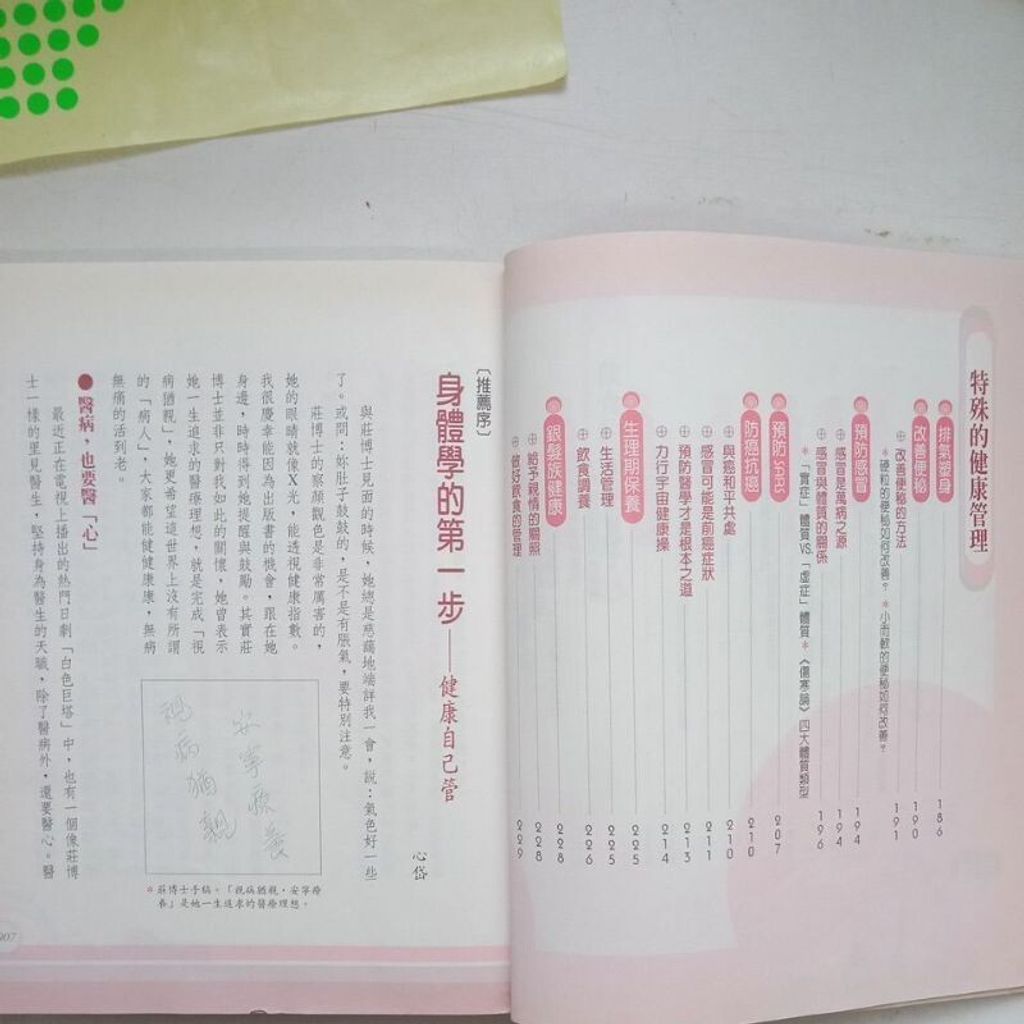 特殊的健康管理
排氣塑身 186
改善便秘 190
改善便秘的方法 191
*硬粒的便秘如何改善？ *小而軟的便秘如何改善？
預防感冒 194
感冒是萬病之源 194
感冒與體質的關係 196
*「實症」體質VS.「虛症」體質 *《傷寒論》四大體質類型
預防SARS 207
防癌抗癌 210
與癌和平共處 210
感冒可能是前癌症狀 211
預防醫學才是根本之道 213
力行宇宙健康操 214
生理期保養 225
生活管理 225
飲食調養 226
銀髮族健康 228
給予親情的關照 228
做好飲食的管理 229
〔推薦序〕
身體學的第一步——健康自己管
心岱
與莊博士見面的時候，她總是慈藹地端詳我一會，說：氣色好一些
了。或問：妳肚子鼓鼓的，是不是有脹氣，要特別注意。
莊博士的察顏觀色是非常厲害的，
她的眼睛就像X光，能透視健康指數。
我很慶幸能因為出版書的機會，跟在她
身邊，時時得到她提醒與鼓勵。其實莊
博士並非只對我如此的關懷，她曾表示
她一生追求的醫療理想，就是完成「視
病猶親」，她更希望這世界上沒有所謂
的「病人」，大家都能健健康康，無病
無痛的活到老。
安寧療養
視病猶親
*莊博士手稿。「視病猶親，安寧療
養」是她一生追求的醫療理想。
●醫病，也要醫「心」
最近正在電視上播出的熱門日劇「白色巨塔」中，也有一個像莊博
士一樣的里見醫生，堅持身為醫生的天職，除了醫病外，還要醫心。醫
007